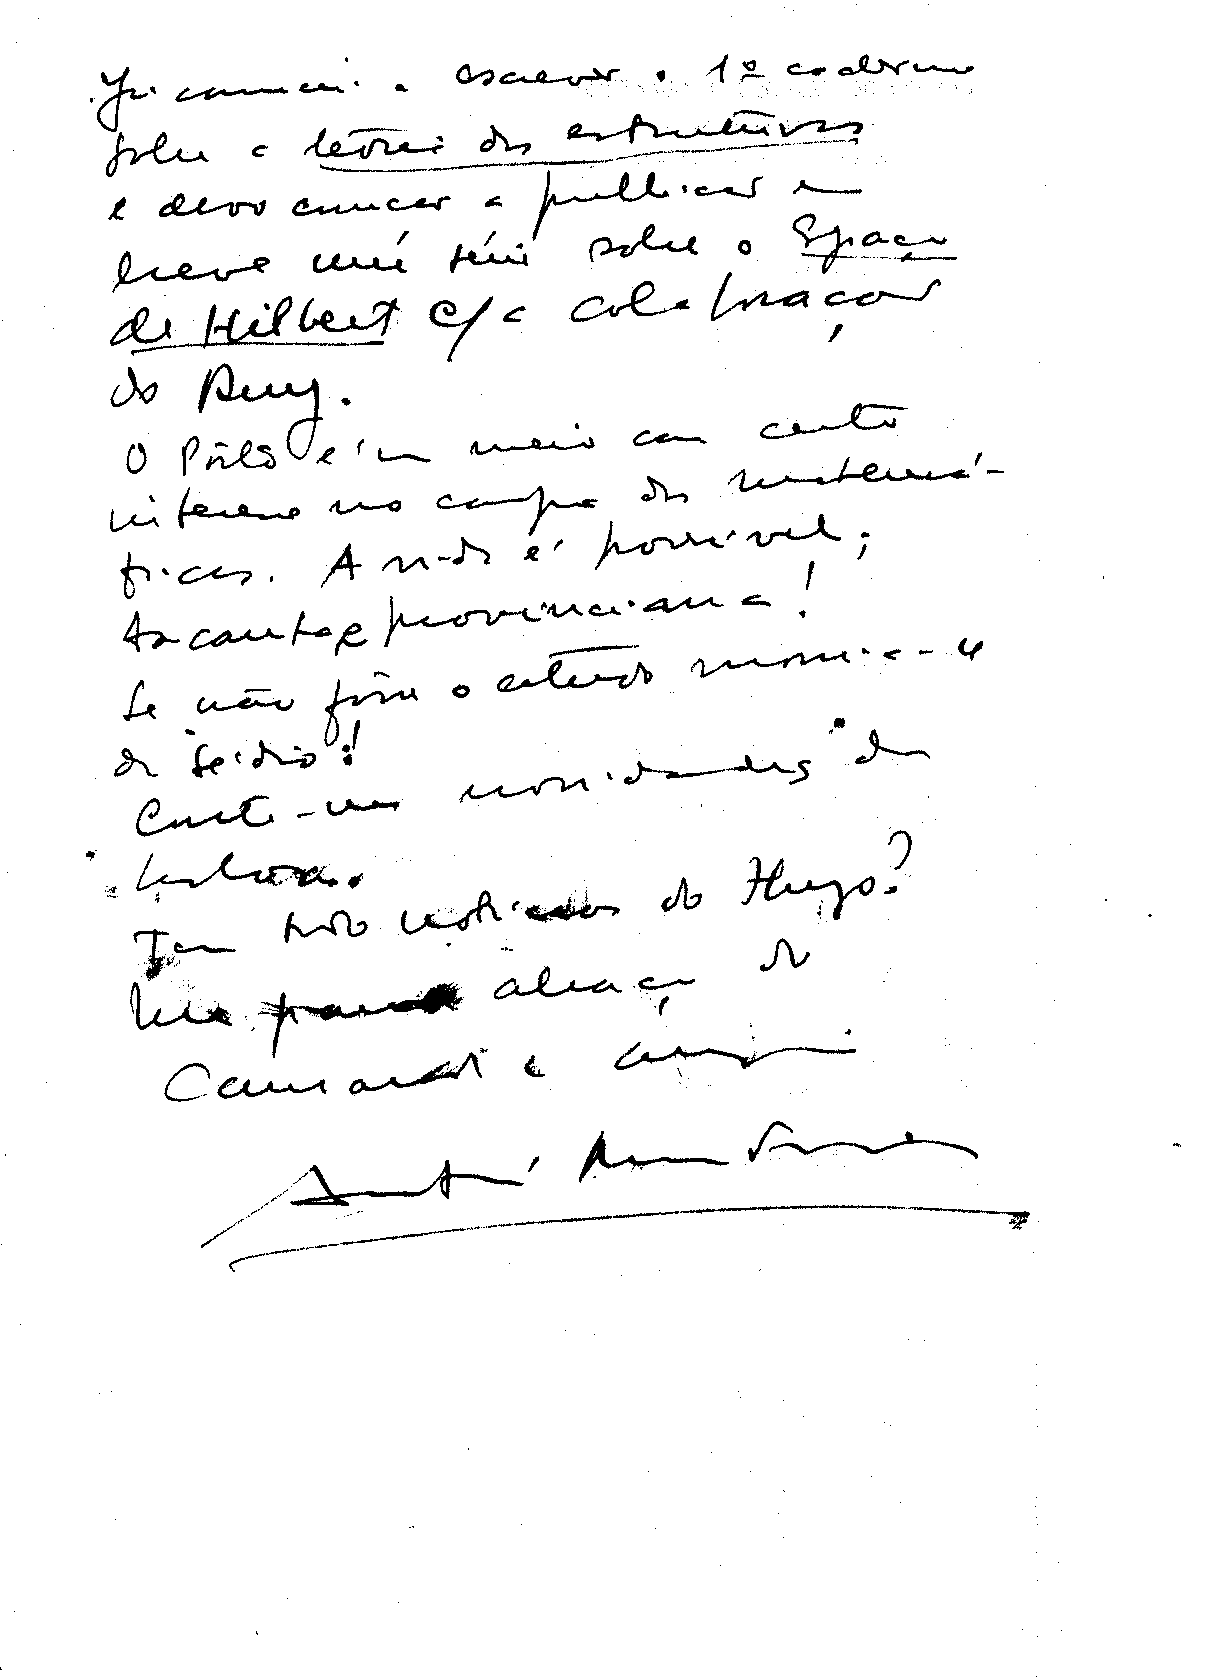 Já comecei a escrever o 1º caderno
sobre a teoria das estruturas
e devo começar a publicar em
breve uma série sobre o Espaço
de Hilbert c/ a colaboração
do Ruy.
O Pôrto é um meio com certo
interesse no campo das matemá-
ticas. A vida é possível;
provinciana!
Se não fôra o estado
de
Conte-me novidades de
Lisboa.
Tem tido notícias do Hugo?
Um grande abraço do
Camarada e amigo
André